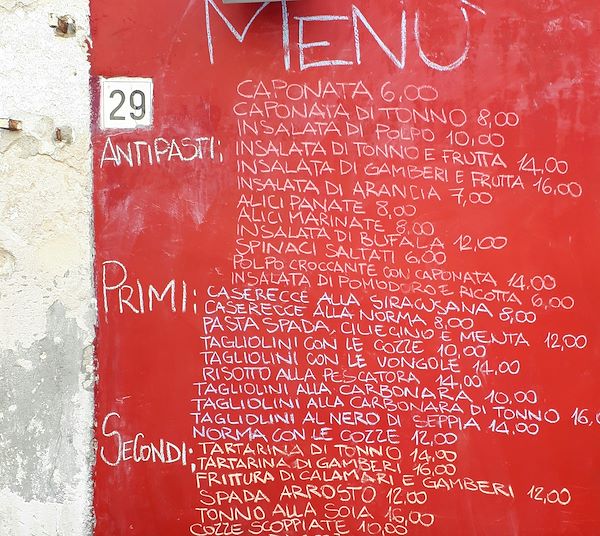 MENÙ
29
CAPONATA 6,00
CAPONATA DI TONNO 8,00
INSALATA DI POLPO 10,00
ANTIPASTI: INSALATA DI TONNO E FRUTTA 14,00
INSALATA DI GAMBERI E FRUTTA 16,00
INSALATA DI ARANCIA 7,00
ALICI PANATE 8,00
ALICI MARINATE 8,00
INSALATA DI BUFALA 12,00
SPINACI SALTATI 6.00
POLPO CROCCANTE CON CAPONATA 14,00
INSALATA DI POMODORO E RICOTTA 6,00
PRIMI: CASERECCE ALLA SIRACUSANA 8,00
CASERECCE ALLA NORMA 8,00
PASTA SPADA, CILIEGINO E MENTA 12,00
TAGLIOLINI CON LE COZZE 10,00
TAGLIOLINI CON LE VONGOLE 14,00
RISOTTO ALLA PESCATORA 14,00
TAGLIOLINI ALLA CARBONARA 10,00
TAGLIOLINI ALLA CARBONARA DI TONNO 16,0
TAGLIOLINI AL NERO DI SEPPIA 14,00
NORMA CON LE COZZE 12,00
SECONDI: TARTARINA DI TONNO 14,00
TARTARINA DI GAMBERI 16,00
FRITTURA DI CALAMARI E GAMBERI 12,00
SPADA ARROSTO 12,00
TONNO ALLA SOIA 16,00
COZZE SCOPPIATE 10,00